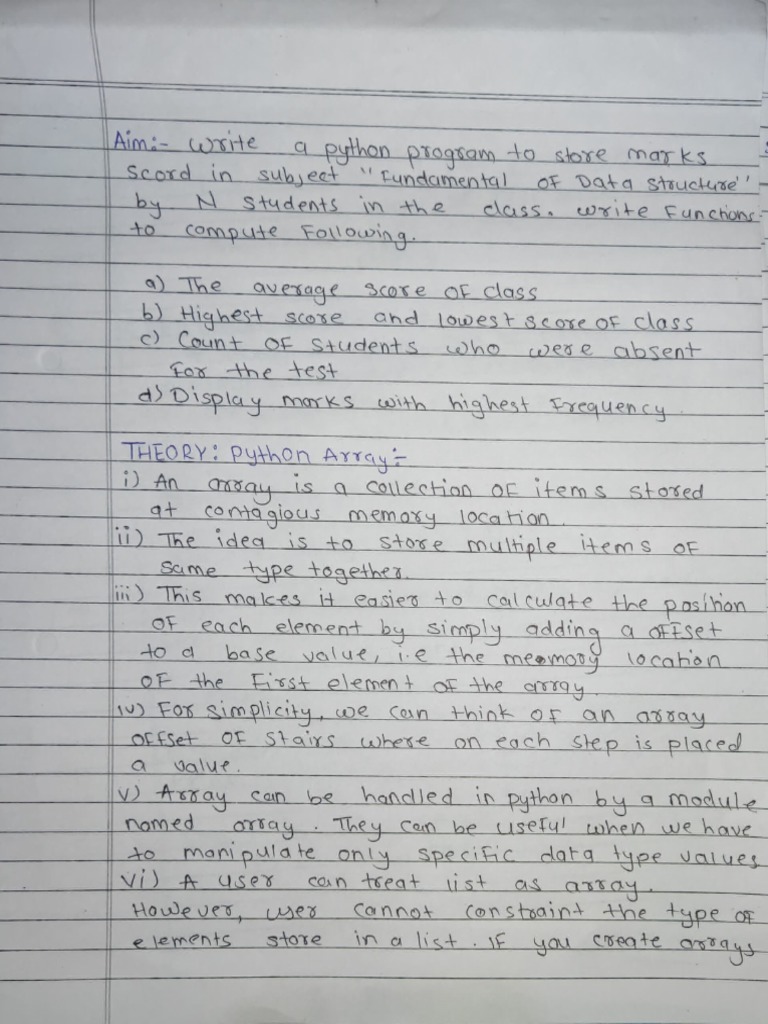 Aim:- Write a python program to store marks
scord in subject "Fundamental OF Data structure"
by N students in the class. write Functions
to compute Following.
a) The average score OF class
b) Highest score and lowest score OF class
c) Count OF students who were absent
For the test
d) Display marks with highest Frequency
THEORY: Python Array:-
i) An array is a collection OF items stored
at contagious memory location.
ii) The idea is to store multiple items OF
same type together.
iii) This makes it easier to calculate the position
OF each element by simply adding a OFFset
to a base value, i.e the memory location
OF the First element of the array.
iv) For simplicity, we can think OF an array
OFFset OF stairs where on each step is placed
a value.
v) Array can be handled in python by a module
named array. They can be useful when we have
to manipulate only specific data type values
vi) A user can treat list as array.
However, user cannot constraint the type OF
elements store in a list. IF you create arrays